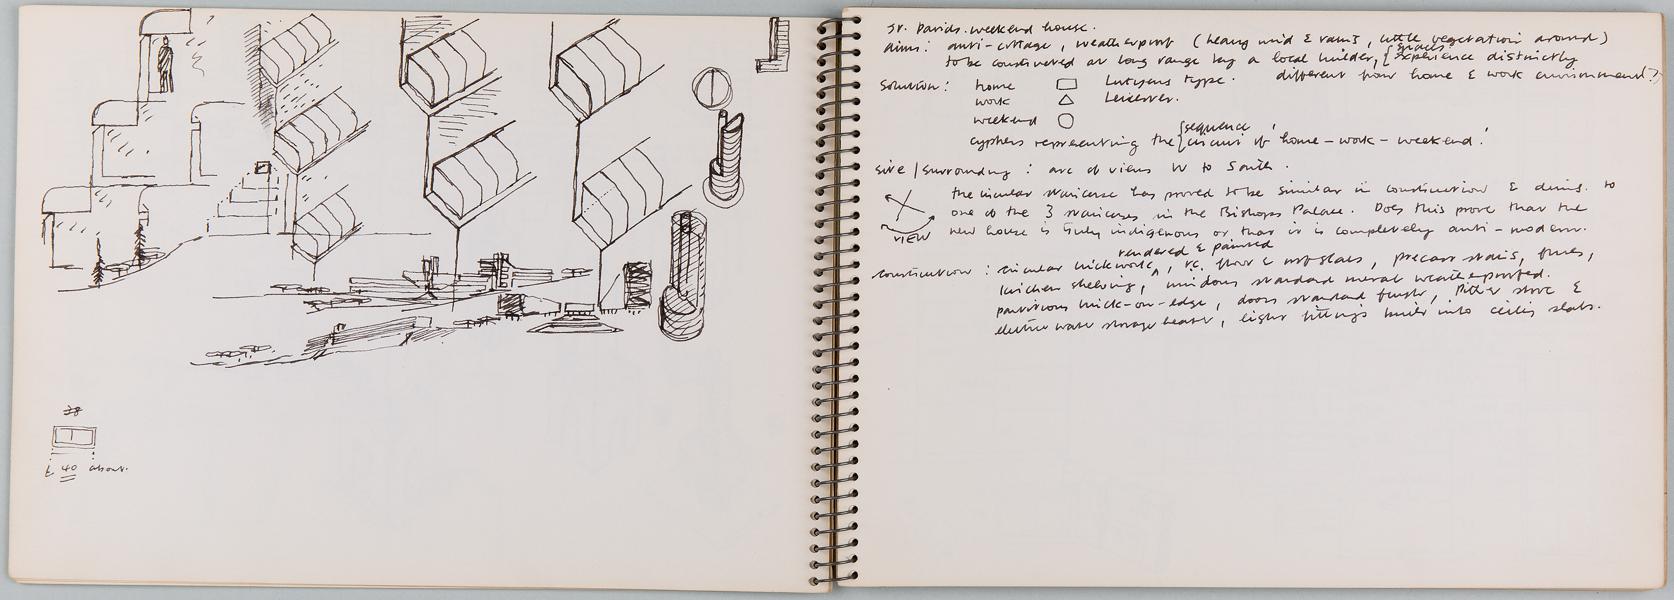 38
£ 40 about.
St. Davids. weekend house.
aims: anti-cottage, weatherproof (heavy wind & rains, little vegetation around)
to be constructed at long range by a local builder, { spaces
experience distinctly
different from home & work environment?)
Solution: home Lutyens type.
work Leicester.
weekend
cyphers representing the { sequence
circuit of 'home - work - weekend'.
site / surrounding: arc of views W to South.
the circular staircase has proved to be similar in construction & dims. to
one of the 3 staircases in the Bishops Palace. Does this prove that the
VIEW
new house is truly indigenous or that it is completely anti-modern.
rendered & painted
construction: circular brickwork, r.c. floor & roof slabs, precast stairs, flues,
kitchen shelving, windows standard metal weatherproofed.
partitions brick-on-edge, doors standard flush, Pither stove &
electric water storage heater, light fittings built into ceiling slabs.